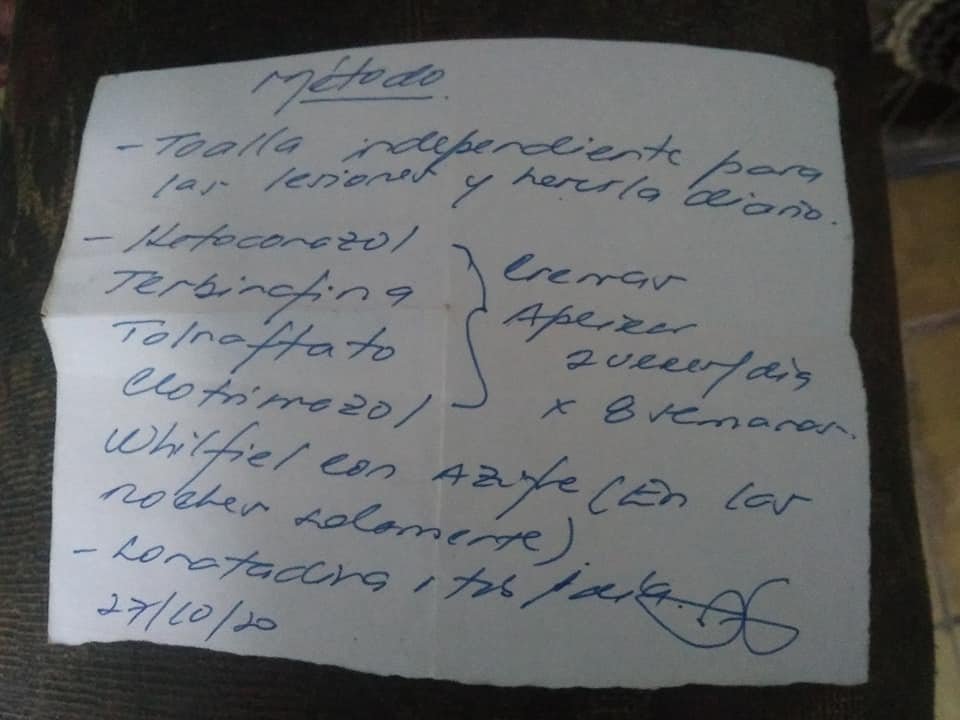 Método
- Toalla independiente para
las lesiones y hervirla diario.
- Ketoconazol
Terbinafina
Tolnaftato
Clotrimazol
Cremas
Aplicar
2 veces/día
x 8 semanas.
Whilfiel con Azufre (En las
noches solamente)
- Loratadina 1 tab/día.
27/10/20